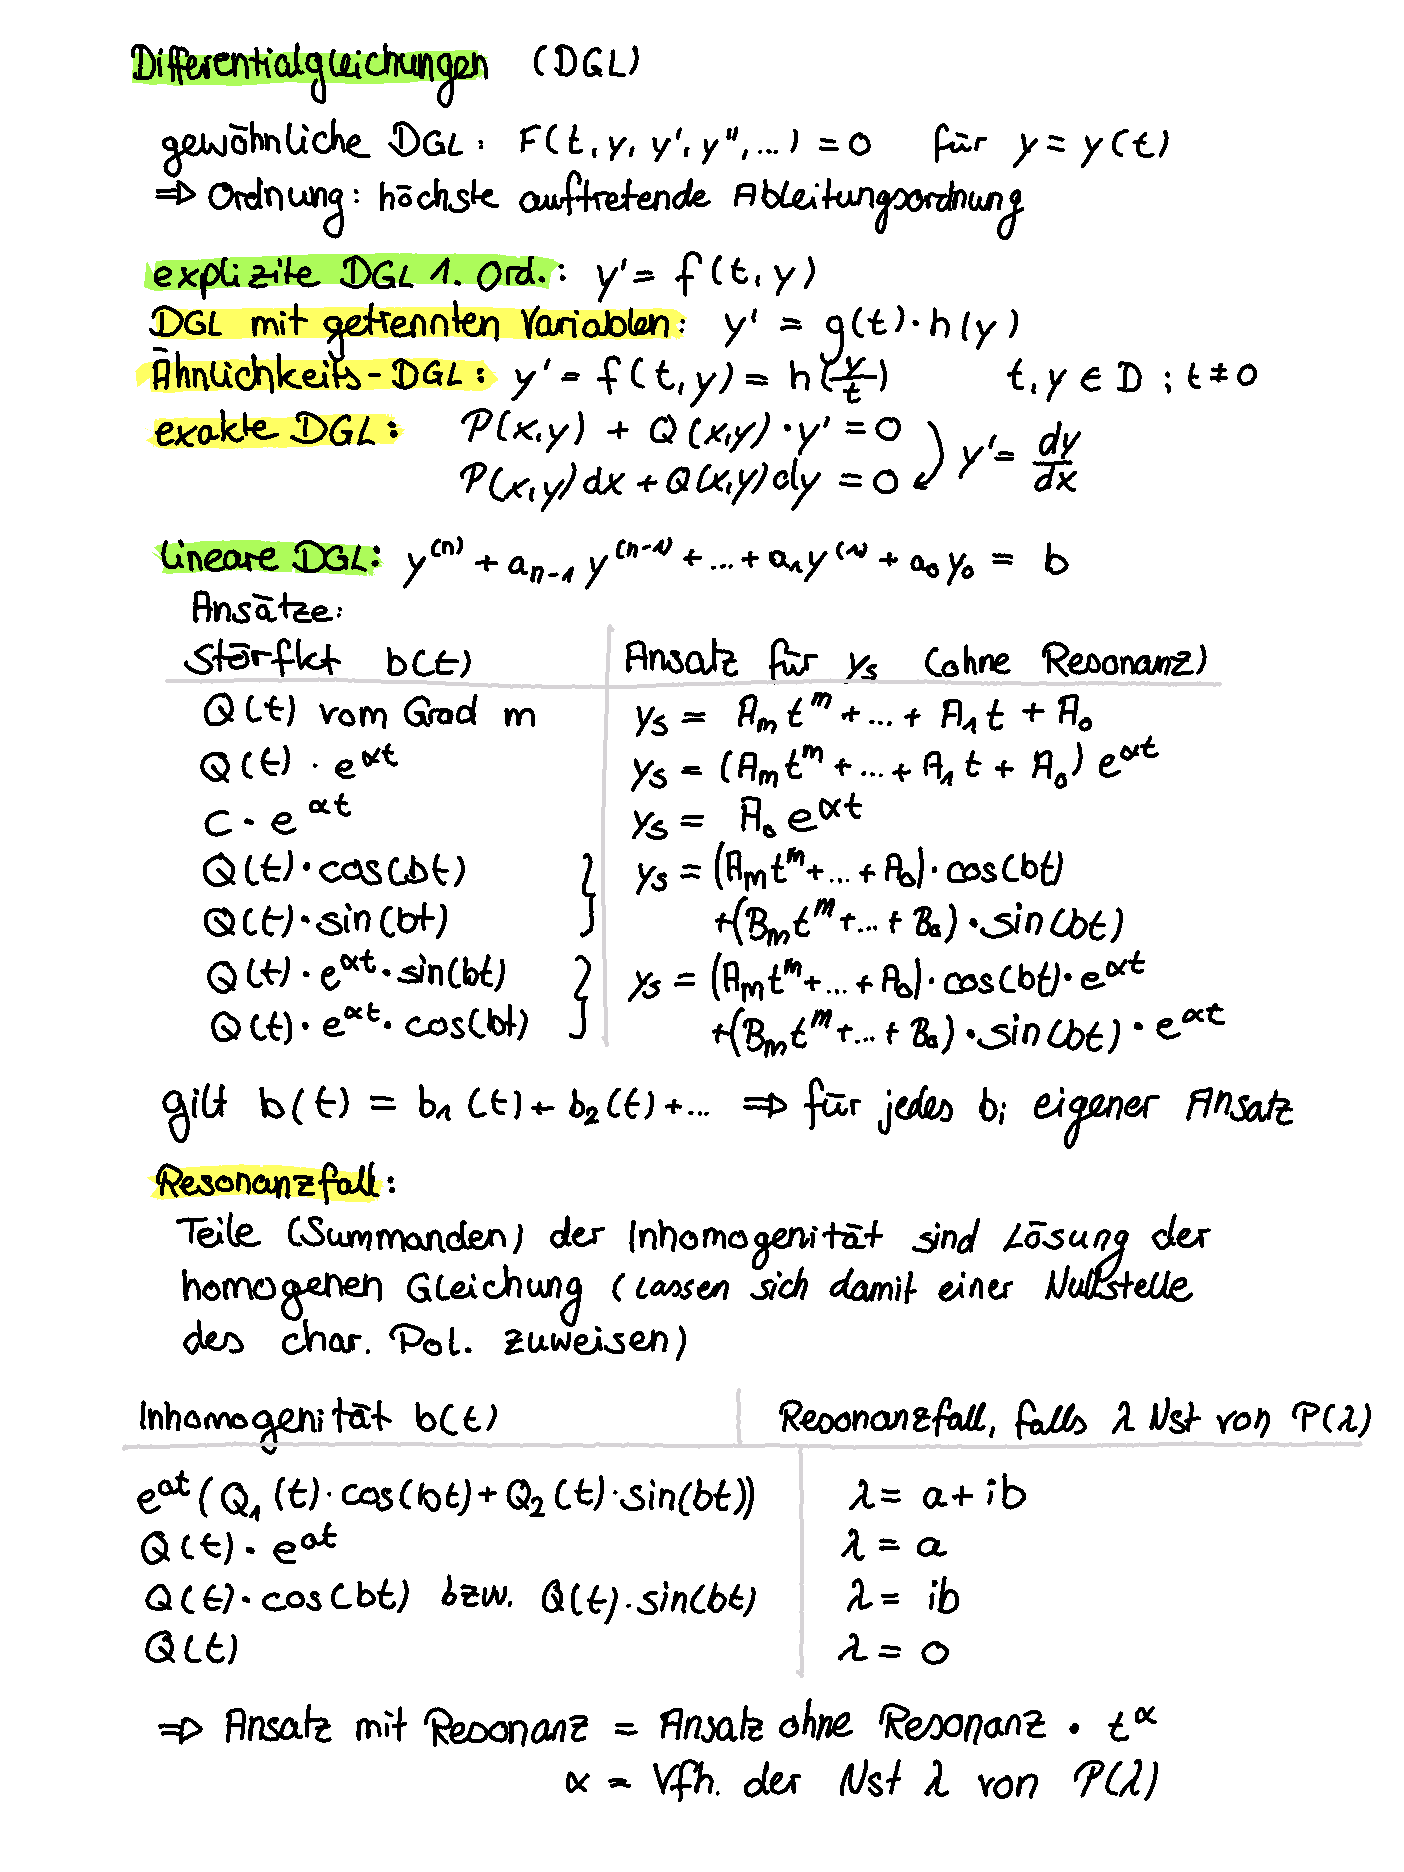 Differentialgleichungen (DGL)
gewöhnliche DGL: F(t, y, y', y'', ...) = 0 für y = y(t)
⇒ Ordnung: höchste auftretende Ableitungsordnung
explizite DGL 1. Ord.: y' = f(t, y)
DGL mit getrennten Variablen: y' = g(t) · h(y)
Ähnlichkeits-DGL: y' = f(t, y) = h(y/t) t, y ∈ D ; t ≠ 0
exakte DGL: P(x,y) + Q(x,y) · y' = 0
P(x,y) dx + Q(x,y) dy = 0 y' = dy/dx
lineare DGL: y^(n) + a_{n-1} y^(n-1) + ... + a_1 y^(1) + a_0 y_0 = b
Ansätze:
Störfkt b(t) Ansatz für y_s (ohne Resonanz)
Q(t) vom Grad m y_s = A_m t^m + ... + A_1 t + A_0
Q(t) · e^{αt} y_s = (A_m t^m + ... + A_1 t + A_0) e^{αt}
C · e^{αt} y_s = A_0 e^{αt}
Q(t) · cos(bt) y_s = (A_m t^m + ... + A_0) · cos(bt)
Q(t) · sin(bt) +(B_m t^m + ... + B_0) · sin(bt)
Q(t) · e^{αt} · sin(bt) y_s = (A_m t^m + ... + A_0) · cos(bt) · e^{αt}
Q(t) · e^{αt} · cos(bt) +(B_m t^m + ... + B_0) · sin(bt) · e^{αt}
gilt b(t) = b_1(t) + b_2(t) + ... ⇒ für jedes b_i eigener Ansatz
Resonanzfall:
Teile (Summanden) der Inhomogenität sind Lösung der
homogenen Gleichung (lassen sich damit einer Nullstelle
des char. Pol. zuweisen)
Inhomogenität b(t) Resonanzfall, falls λ Nst von P(λ)
e^{at} (Q_1(t) · cos(bt) + Q_2(t) · sin(bt)) λ = a + ib
Q(t) · e^{at} λ = a
Q(t) · cos(bt) bzw. Q(t) · sin(bt) λ = ib
Q(t) λ = 0
⇒ Ansatz mit Resonanz = Ansatz ohne Resonanz · t^α
α = Vfh. der Nst λ von P(λ)